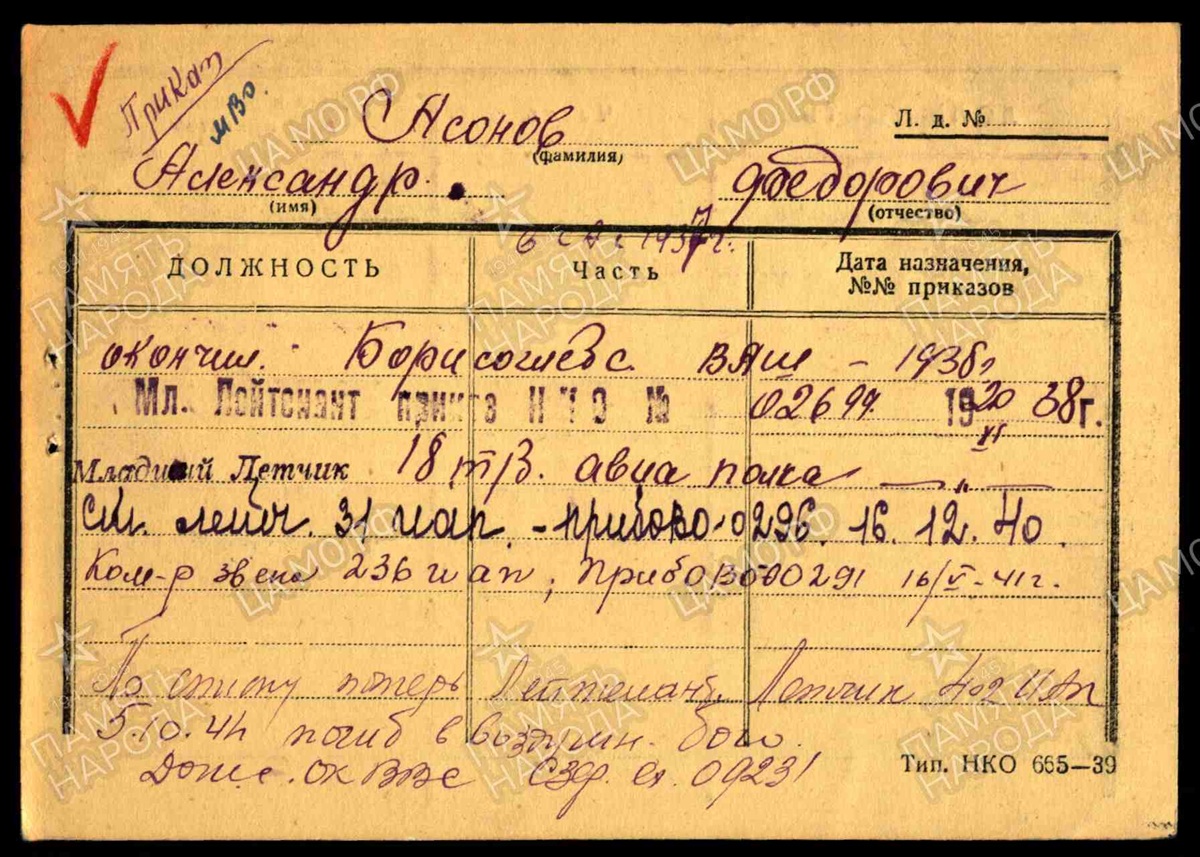 Приказ
МВО.
Асонов
Л. д. №
(фамилия)
Александр. Федорович
(имя) (отчество)
в СА с 1937 г.
ДОЛЖНОСТЬ Часть Дата назначения, №№ приказов
окончил. Борисоглебс. ВАШ – 1938г
Мл. Лейтенант приказ НКО № 02697 1920 38г.
XI
Младший Летчик 18 тр. авиа полка — „ —
Ст. лейт. 31 иап. – прибово. 0296. 16. 12. 40.
Ком-р звена 236 иап, ПрибОВО 00291 16/V-41г.
По списку потерь Лейтенант. Летчик 402 ИАП
5.10.41 погиб в воздушн. бою.
Донс. ВВС 09231
Тип. НКО 665—39
ЦАМО.РФ
1941-1945
ПАМЯТЬ
НАРОДА